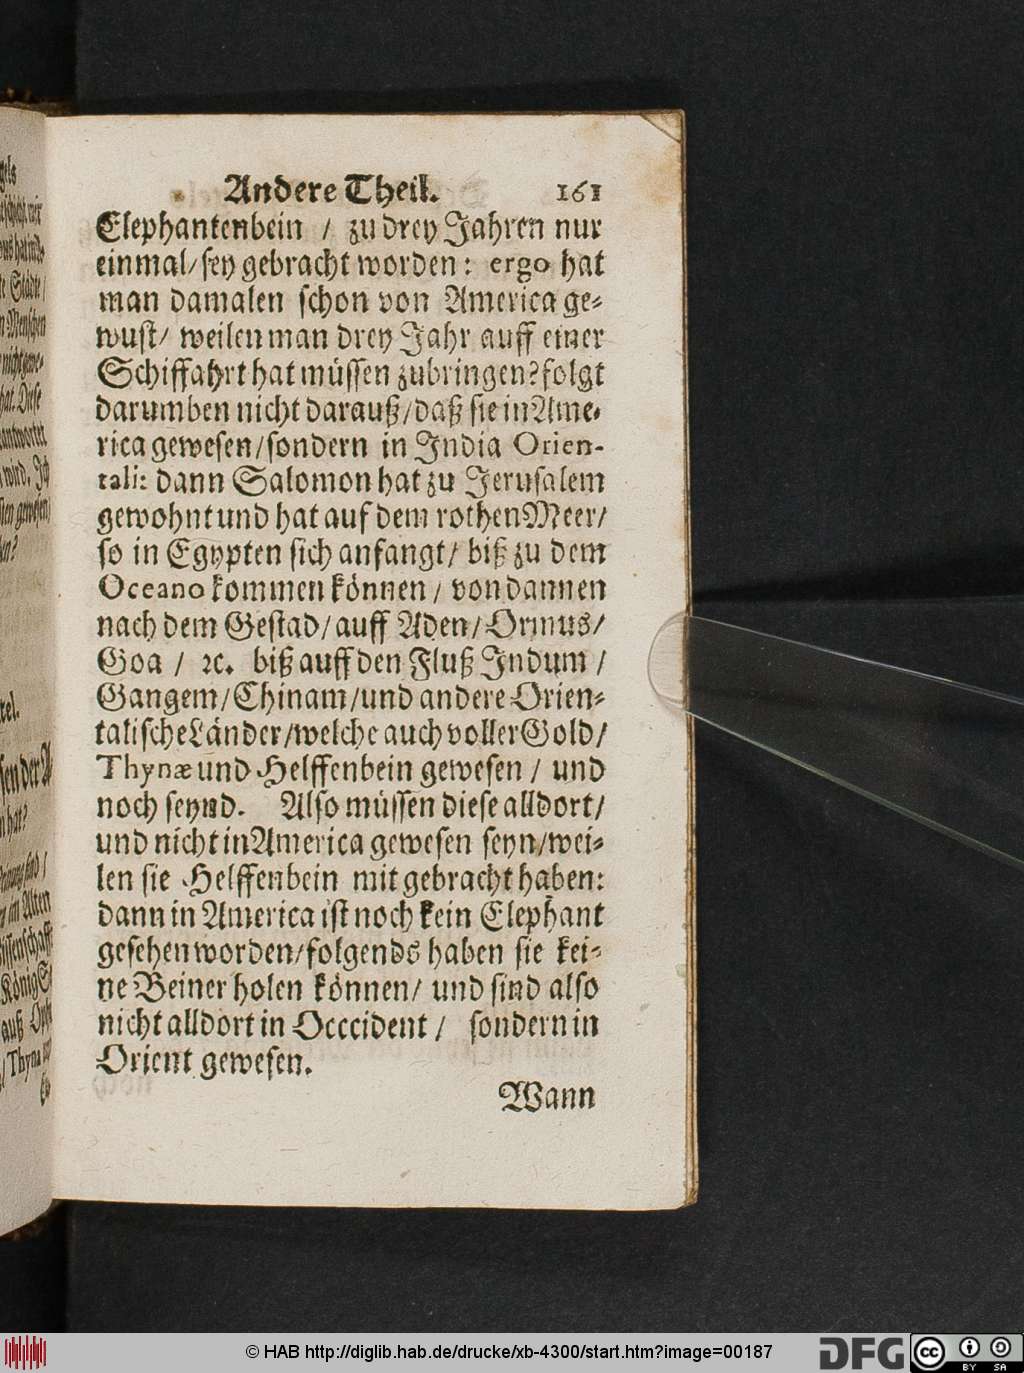 Andere Theil. 161
Elephantenbein / zu drey Jahren nur
einmal/sey gebracht worden: ergo hat
man damalen schon von America ge-
wust/ weilen man drey Jahr auff einer
Schiffahrt hat müssen zubringen? folgt
darumben nicht darauß/daß sie in Ame-
rica gewesen/sondern in India Orien-
tali: dann Salomon hat zu Jerusalem
gewohnt und hat auf dem rothen Meer/
so in Egypten sich anfangt/ biß zu dem
Oceano kommen können / von dannen
nach dem Gestad/auff Aden/Ormus/
Goa / ꝛc. biß auff den Fluß Indum /
Gangem/Chinam/und andere Orien-
talische Länder/welche auch voller Gold/
Thynæ und Helffenbein gewesen / und
noch seynd. Also müssen diese alldort/
und nicht in America gewesen seyn/wei-
len sie Helffenbein mit gebracht haben:
dann in America ist noch kein Elephant
gesehen worden/folgends haben sie kei-
ne Beiner holen können/ und sind also
nicht alldort in Occcident / sondern in
Orient gewesen.
Wann
© HAB http://diglib.hab.de/drucke/xb-4300/start.htm?image=00187
DFG
cc
BY SA